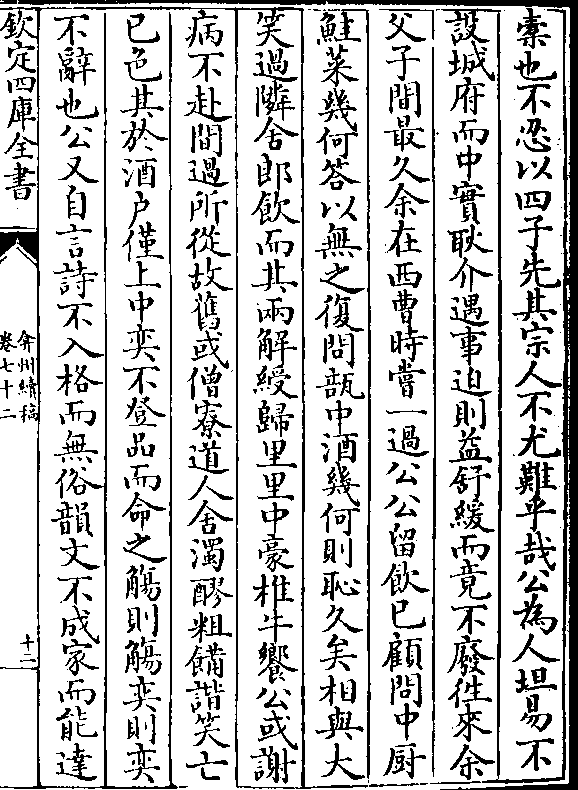 橐也不忍以四子先其宗人不尤難乎哉公為人坦易不
設城府而中實耿介遇事迫則益舒緩而竟不廢徃來余
父子間最久余在西曹時嘗一過公公留飲已顧問中厨
鮭菜幾何答以無之復問瓿中酒幾何則恥久矣相與大
笑過隣舍郎飲而其兩解綬歸里里中豪椎牛饗公或謝
病不赴間過所從故舊或僧寮道人舍濁醪粗餚諧笑亡
已色其於酒户僅上中奕不登品而命之觴則觴奕則奕
不辭也公又自言詩不入格而無俗韻文不成家而能達
欽定四庫全書
弇州續稿
卷七十二
十二